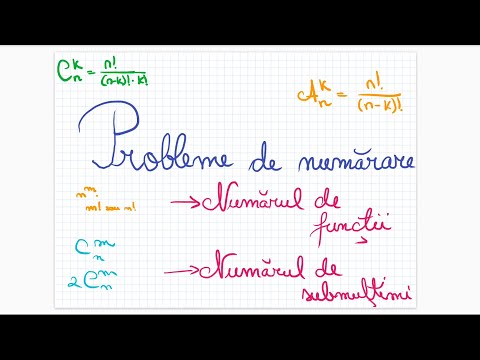 C_n^k = n!/((n-k)!·k!)
A_n^k = n!/(n-k)!
Probleme de numărare
n^m.
m! sau n!
→ Numărul de
funcții
C_n^m
2C_n^m
→ Numărul de
submulțimi